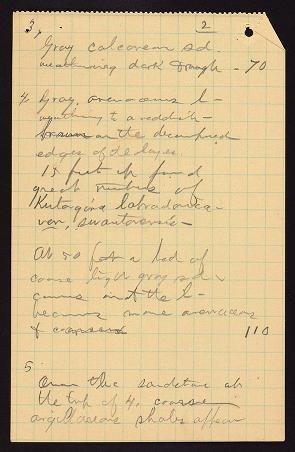 2
3, Gray calcareous sd.
weathering dark - 70
4 Gray, arenaceous l-
to a reddish-
brown on the decomposed
edges of the layers
15 feet up found
great numbers of
Kutorgina labradorica
var, swantonensis -
At 50 feet a bed of
coarse light gray sd -
comes in & the l-
becoming more arenaceous
& coarser 110
5
Over the sandstone at
the top of 4, coarse
argillaceous shales appear